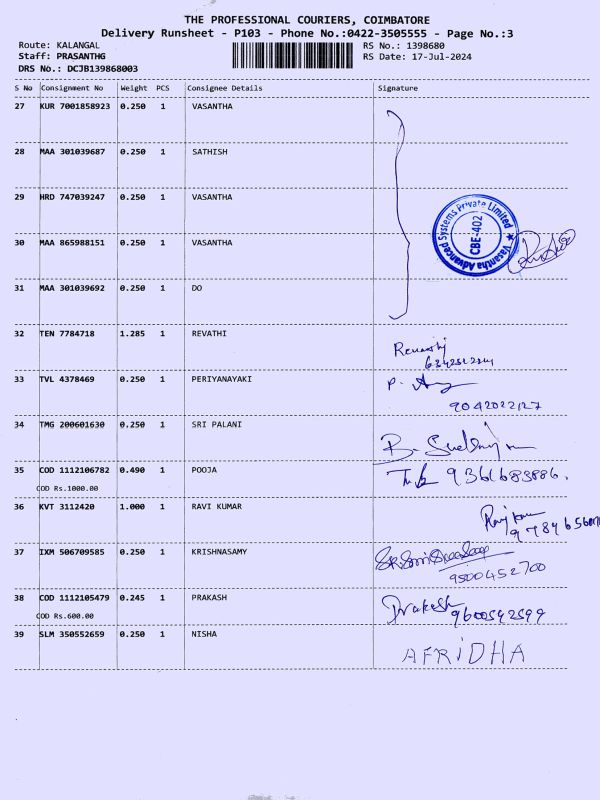 THE PROFESSIONAL COURIERS, COIMBATORE
Delivery Runsheet - P103 - Phone No.:0422-3505555 - Page No.:3
Route: KALANGAL
RS No.: 1398680
Staff: PRASANTHG
RS Date: 17-Jul-2024
DRS No.: DCJB139868003
S No Consignment No Weight PCS Consignee Details Signature
27 KUR 7001858923 0.250 1 VASANTHA
28 MAA 301039687 0.250 1 SATHISH
29 HRD 747039247 0.250 1 VASANTHA
Vasantha Advanced Systems Private Limited
CBE-402
30 MAA 865988151 0.250 1 VASANTHA
31 MAA 301039692 0.250 1 DO
32 TEN 7784718 1.285 1 REVATHI
33 TVL 4378469 0.250 1 PERIYANAYAKI
9042022127
34 TMG 200601630 0.250 1 SRI PALANI
35 COD 1112106782 0.490 1 POOJA
9361683886.
COD Rs.1000.00
36 KVT 3112420 1.000 1 RAVI KUMAR
37 IXM 506709585 0.250 1 KRISHNASAMY
9500452700
38 COD 1112105479 0.245 1 PRAKASH
Prakash
9600592599
COD Rs.600.00
39 SLM 350552659 0.250 1 NISHA
AFRIDHA